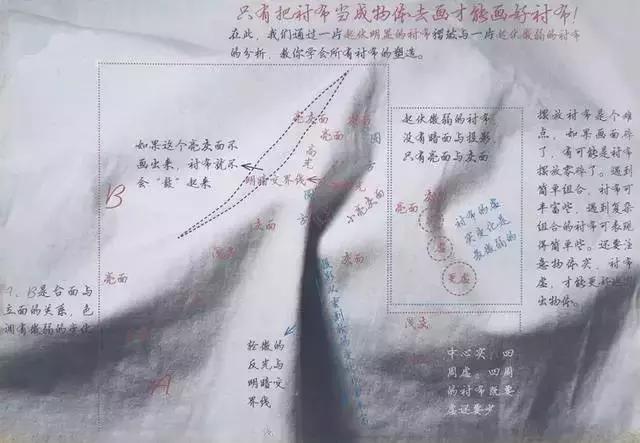 只有把衬布当成物体去画才能画好衬布!
在此，我们通过一片起伏明显的衬布褶皱与一片起伏微弱的衬布
的分析，教你学会所有衬布的塑造。
如果这个亮灰面不
画出来，衬布就不
会“鼓”起来
亮灰面
亮面
高光
明暗交界线
灰面
浅灰
亮面
B
小亮灰面
灰面
A、B是台面与
立面的关系，色
调有微弱的变化
A
轻微的
反光与
明暗交
界线
起伏微弱的衬布
没有暗面与投影，
只有亮面与灰面
亮面
衬布的虚
实变化是
最微弱的
虚
更虚
浅灰
中心实，四
周虚。四周
的衬布既要
虚还要少
摆放衬布是个难
点，如果画面碎
了，有可能是衬布
摆放零碎了。遇到
简单组合，衬布可
丰富些，遇到复杂
组合的衬布可表现
得简单些。还要注
意物体实，衬布
虚，才能更
出物体。